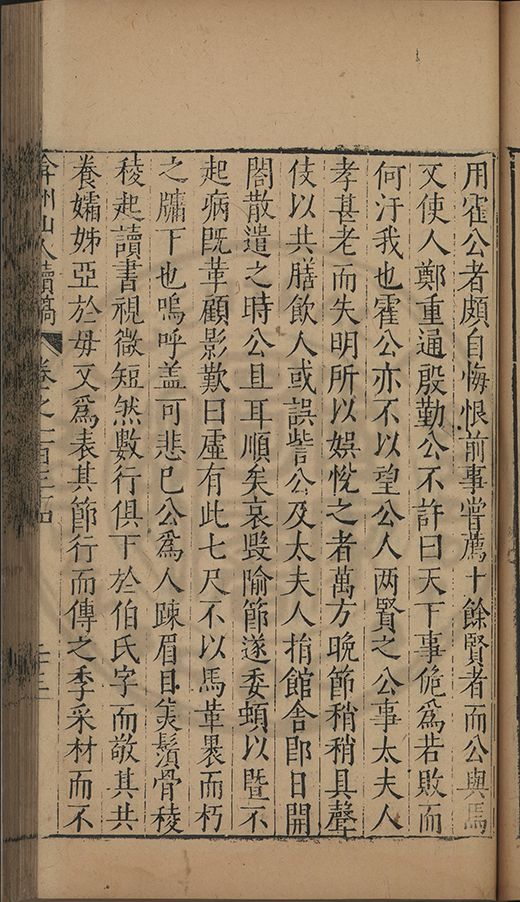 用霍公者頗自悔恨前事嘗薦十餘賢者而公與焉
又使人鄭重通殷勤公不許曰天下事佹爲若敗而
何汙我也霍公亦不以望公人两賢之公事太夫人
孝甚老而失明所以娯悅之者萬方晩節稍稍具聲
伎以共膳飲人或誤訾公及太夫人捐館舍卽日開
閤散遣之時公且耳順矣哀毀隃節遂委頓以暨不
起病旣革顧影歎曰虛有此七尺不以馬革裹而朽
之牖下也嗚呼盖可悲已公爲人踈眉目美鬚骨稜
稜起讀書視微短然數行俱下於伯氏字而敬其共
養孀姊亞於毋又爲表其節行而傳之季采材而不
弇州山人續稿 卷之一百三十四